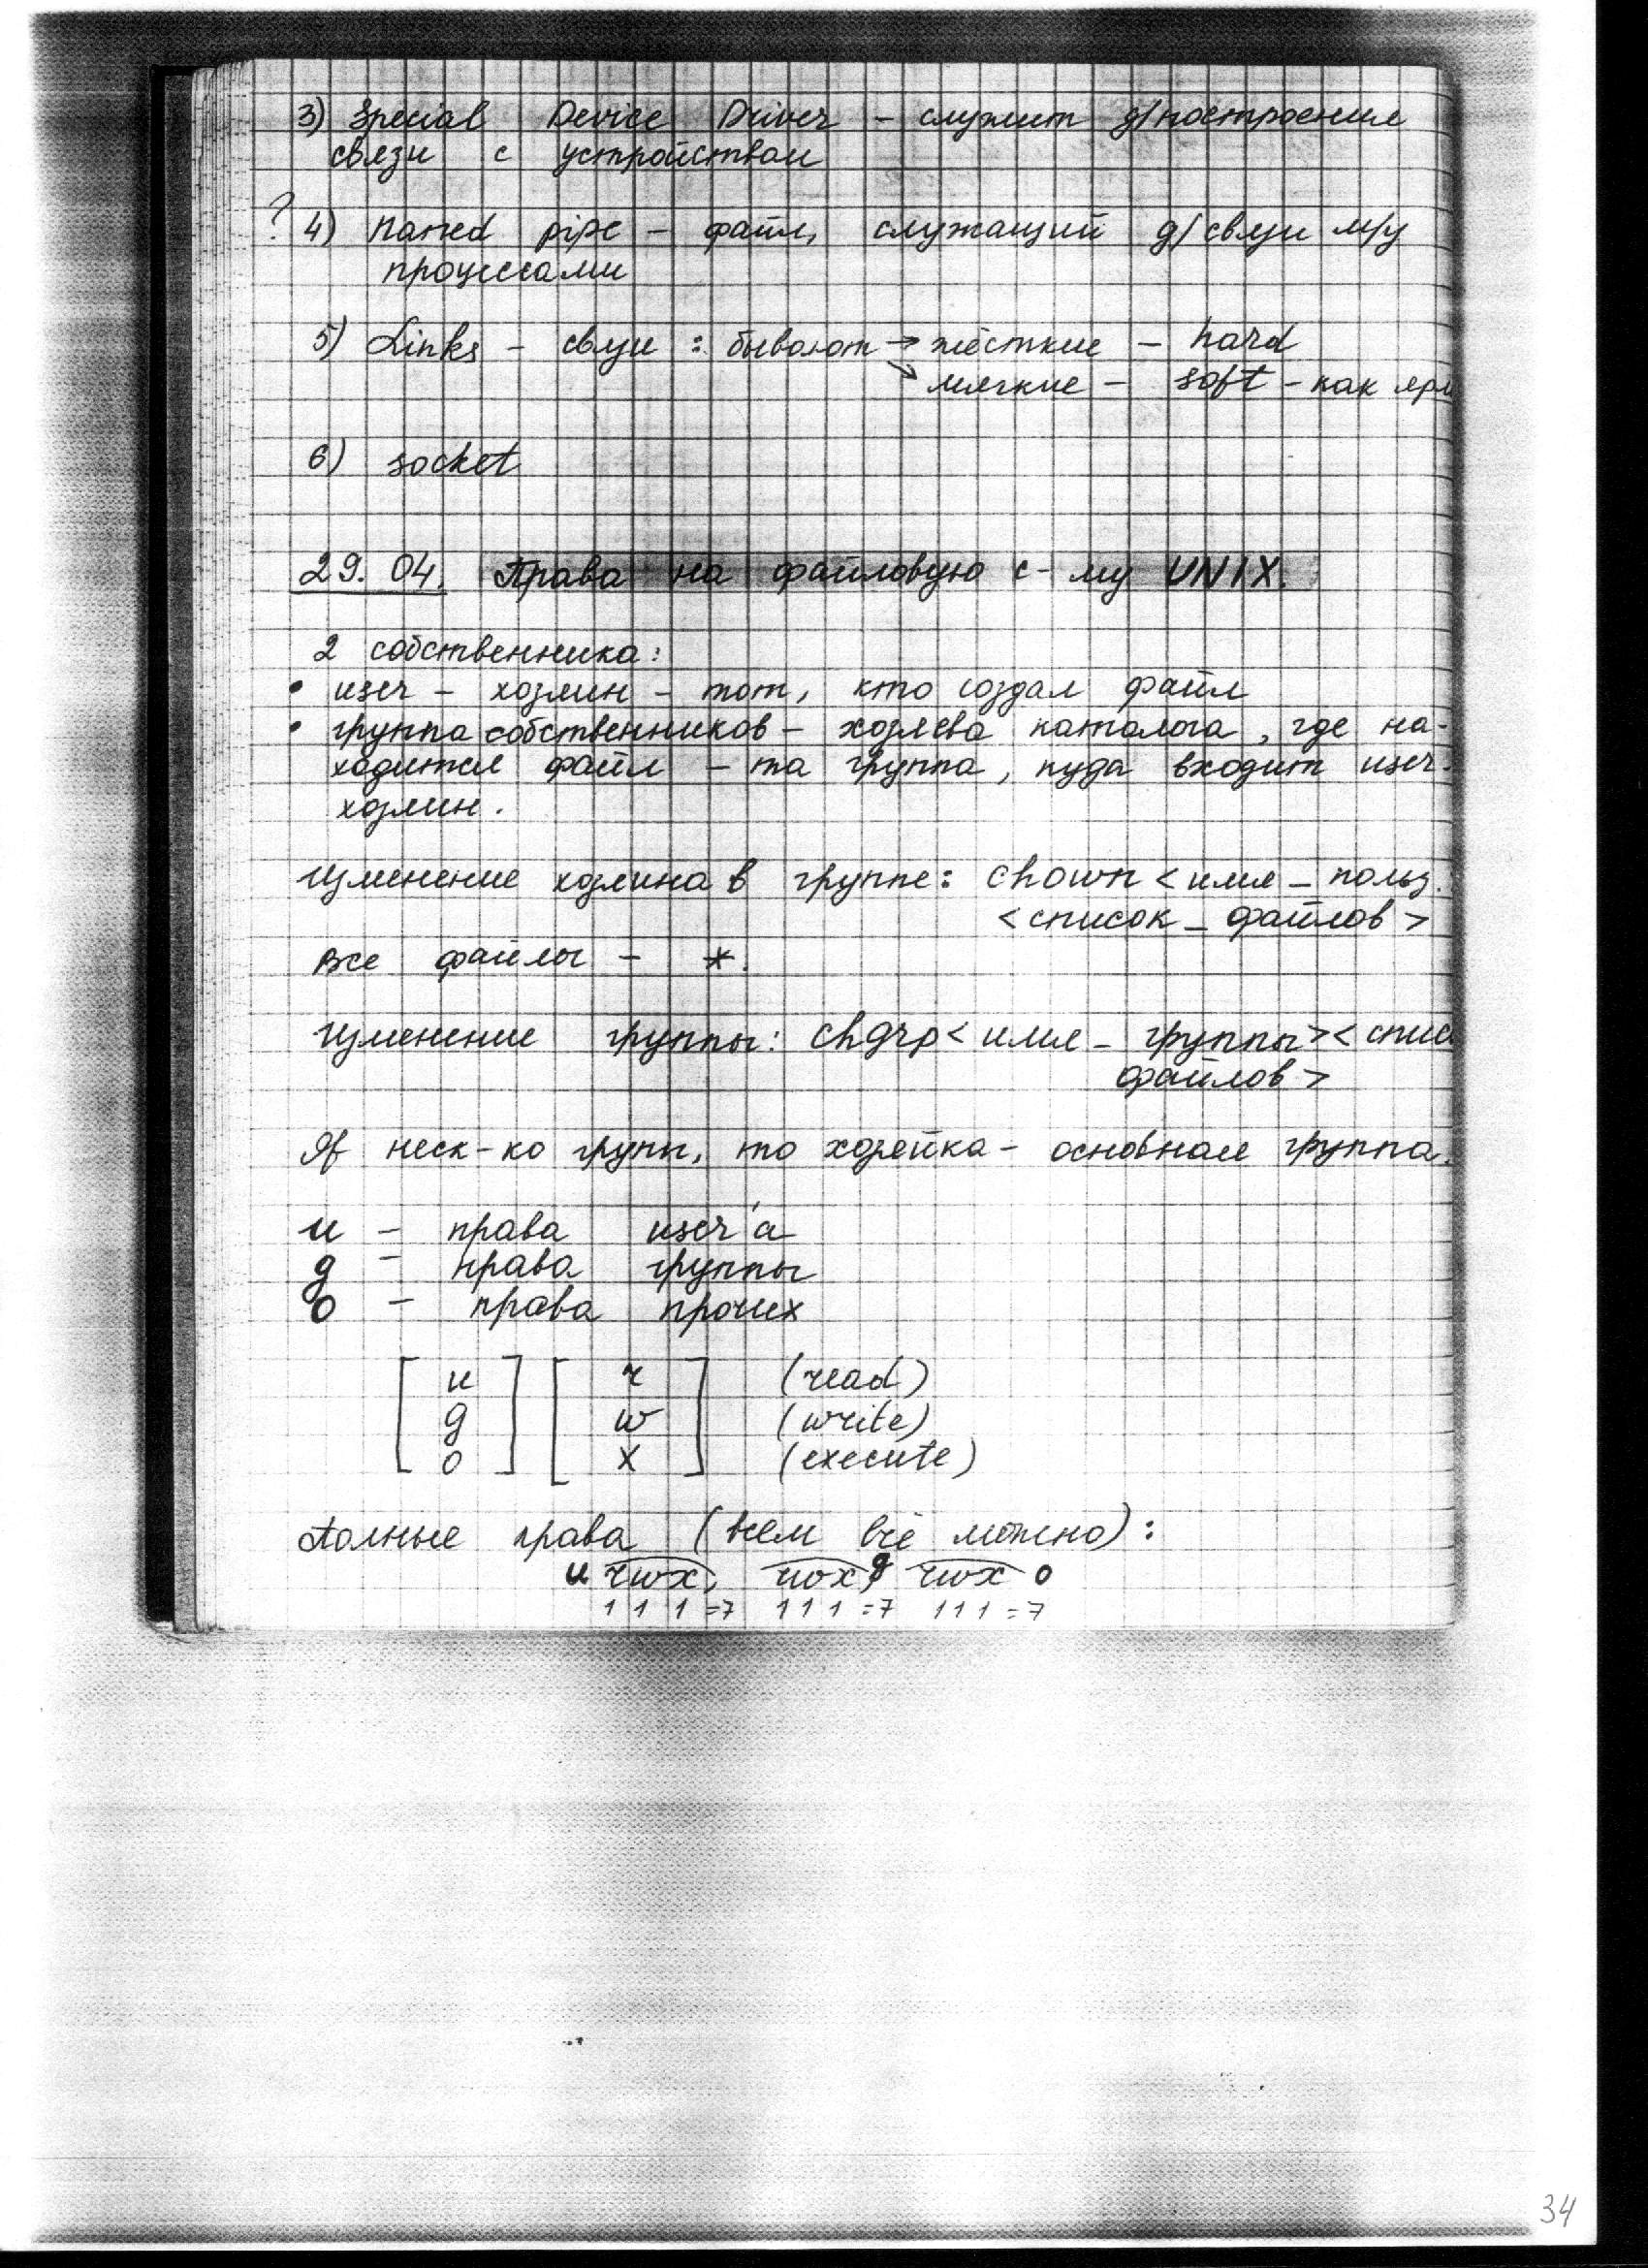 3) Special Device Driver - служит д/построения
связи с устройством
? 4) Named pipe - файл, служащий д/связи м/у
процессами
5) Links - связи : бывают → жёсткие - hard
↘ мягкие - soft - как ярл
6) socket
29.04. Права на файловую с-му UNIX.
2 собственника:
• user - хозяин - тот, кто создал файл
• группа собственников - хозяева каталога, где на-
ходится файл - та группа, куда входит user-
хозяин.
Изменение хозяина в группе: chown <имя_польз.
<список_файлов>
Все файлы - *.
Изменение группы: chgrp <имя_группы> <спис
файлов>
If неск-ко групп, то хозяйка - основная группа.
u - права user'а
g - права группы
o - права прочих
[ u ] [ r ] (read)
[ g ] [ w ] (write)
[ o ] [ x ] (execute)
Полные права (всем всё можно):
u rwx, rwx, g rwx o
1 1 1 =7 1 1 1 =7 1 1 1 =7
34